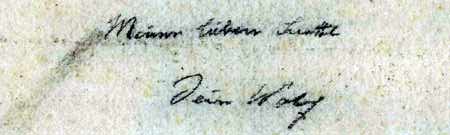 Meinem lieben
Dein Wolf